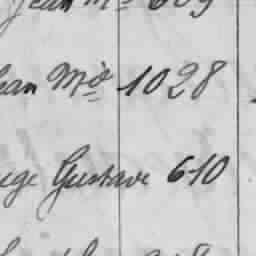 Jean M 609
ean Mie 1028
uge Gustave 610